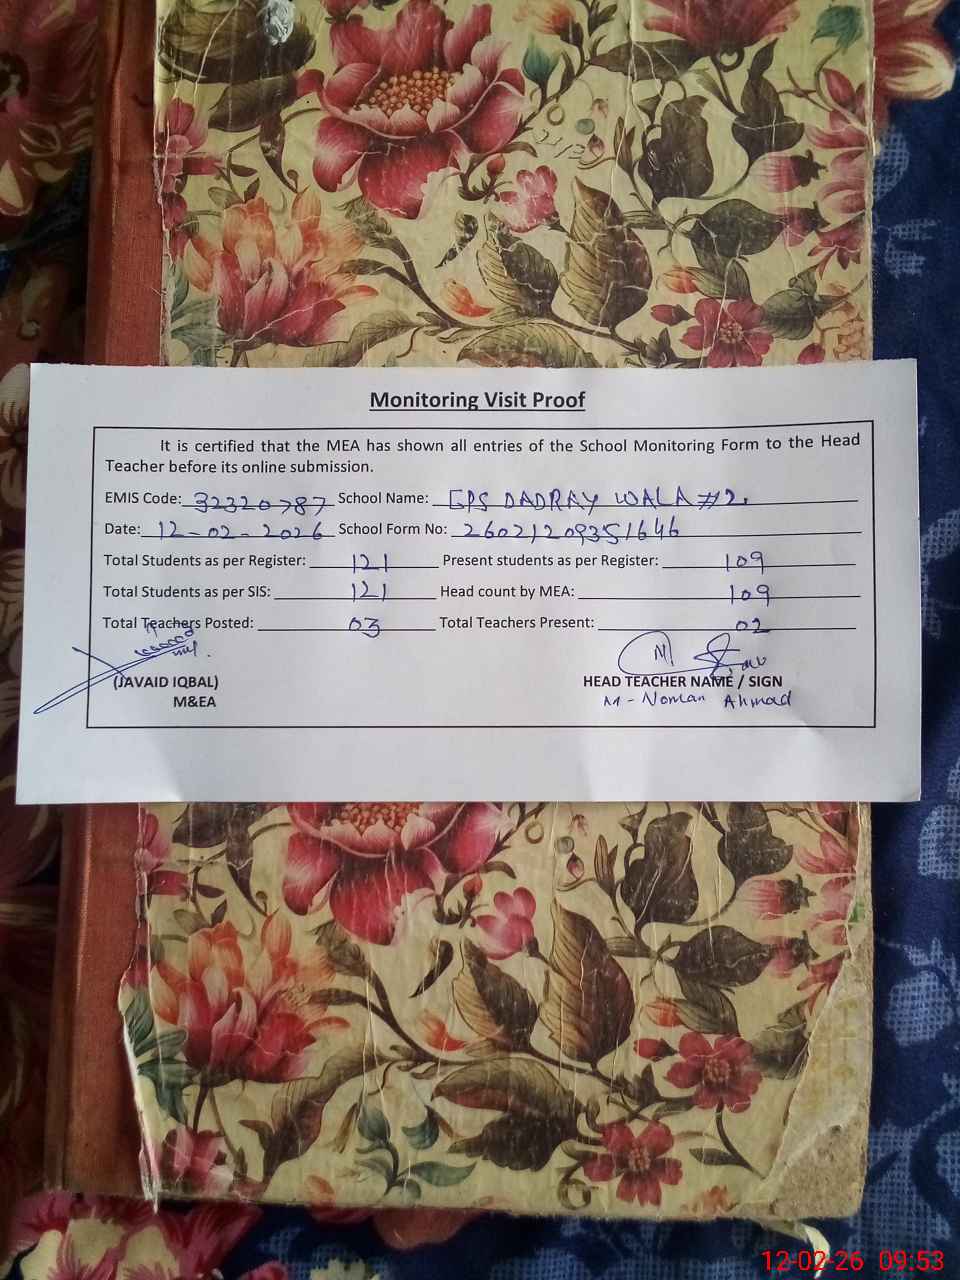 Monitoring Visit Proof
It is certified that the MEA has shown all entries of the School Monitoring Form to the Head
Teacher before its online submission.
EMIS Code: 32320787 School Name: GPS DADRAY WALA #2.
Date: 12-02-2026 School Form No: 26021209351646
Total Students as per Register: 121 Present students as per Register: 109
Total Students as per SIS: 121 Head count by MEA: 109
Total Teachers Posted: 03 Total Teachers Present: 02
(JAVAID IQBAL) HEAD TEACHER NAME / SIGN
M&EA M - Noman Ahmad
12-02-26 09:53